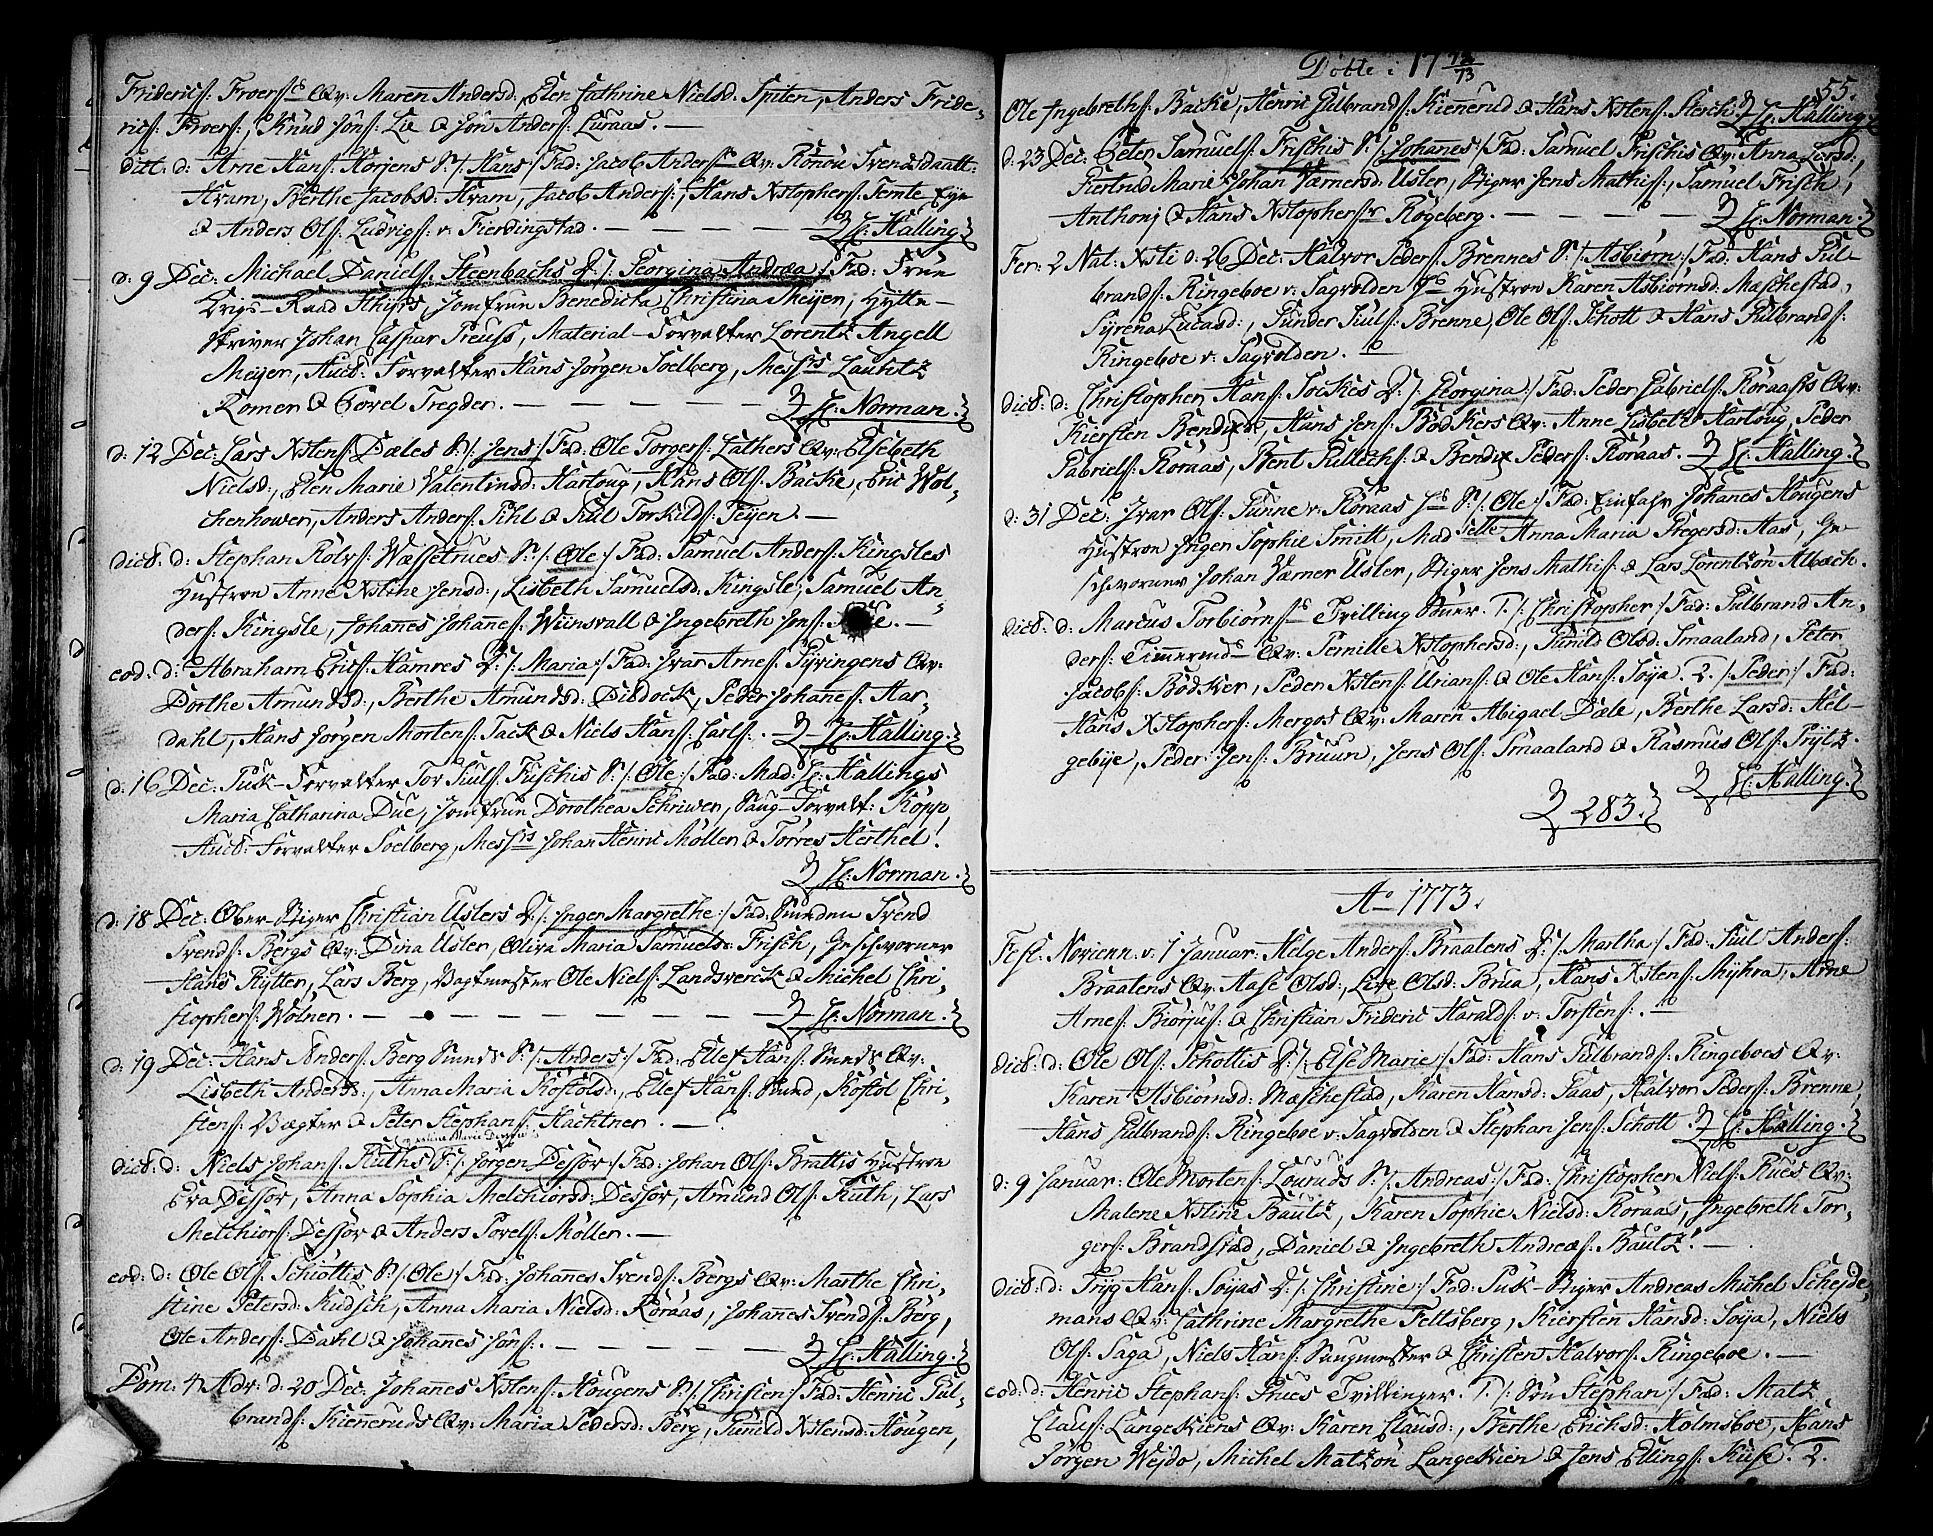 Friderics: Froers:s Qv: Maren Andersd: Elen Cathrine Nielsd: Spiten, Anders Fride-
rics: Froers:, Knud Jons: Lie & Jon Anders: Luraas. —
ditt. d: Arne Hans: Korsens S: /: Hans :/ Fad: Jacob Anders: Qv: Rönou Svensdaatt:
Kram, Berthe Jacobsd: Kram, Jacob Anders:, Hans Xstophers: Temte Eye
& Anders Ols: Ludvigs: v: Fierdingstad. — H: Halling.
d: 9 Dec: Michael Daniels: Steenbachs D: /: Georgina Andrea :/ Fad: Frue
Krigs-Raad Thiss, Jomfrue Benedicta Christina Meyer, Hytte-
skriver Johan Caspar Preuss, Material-Forvalter Lorentz Angell
Meyer, Auct: Forvalter Hans Jörgen Soelberg, Messrs Lauritz
Romer & Povel Tregder. — H: Norman.
d: 12 Dec: Lars Xstens: Dæles S: /: Jens :/ Fad: Ole Torgers: Lathers Qv: Elsebeth
Nielsd:, Elen Marie Valentinsd: Hartoug, Hans Ols: Backe, Eric Wol-
chenhower, Anders Anders: Pihl & Juul Torkilds: Teyen. —
dict: d: Stephan Rolvs: Wæssetrues S: /: Ole :/ Fad: Samuel Anders: Kingsles
Hustroe Anne Xstine Jensd:, Lisbeth Samuelsd: Kingsle, Samuel An-
ders: Kingsle, Johanes Johanes: Wiinsvall & Ingebreth Jens: —
eod: d: Abraham Erics: Hamres D: /: Maria :/ Fad: Ivar Arnes: Gyringens Qv:
Dorthe Amundsd:, Berthe Amundsd: Dildock, Peder Johanes: Aar-
dahl, Hans Jörgen Mortens: Tack & Niels Hans: Carls:. H: Halling.
d: 16 Dec: Puk-Forvalter Tor Juuls: Fuschis S: /: Ole :/ Fad: Mad: H: Hallings
Maria Catharina Due, Jomfrue Dorothea Schriwer, Saug-Forvalt: Kopp,
Auct: Forvalter Soelberg, Messrs Johan Henric Möller & Torres Herthel.
H: Norman.
d: 18 Dec: Ober-Stiger Christian Uslers D: /: Inger Margrethe :/ Fad: Smeden Svend
Svends: Bergs Qv: Dina Usler, Oliva Maria Samuels: Frisch, Geschworner
Hans Rytter, Lars Berg, Vagtmester Ole Niels: Landsverck & Michel Chri-
stophers: Wolner. — H: Norman.
d: 19 Dec: Hans Anders: Berg Smeds S: /: Anders :/ Fad: Ellef Hans: Smeds Qv:
Lisbeth Andersd:, Anna Maria Kostolsd:, Ellef Hans: Smed, Kostol Chri-
stens: Vægter & Peter Stephans: Hachtner. —
dict: d: Niels Johans: Ruths S: /: Jorgen Dessor :/ Fad: Johan Ols: Brattis Hustroe
Eva Dessor, Anna Sophia Melchiorsd: Dessor, Amund Ols: Ruth, Lars
Melchiors: Dessor & Anders Povels: Möller. —
eod: d: Ole Ols: Schiöttis S: /: Ole :/ Fad: Johanes Svends: Bergs Qv: Marthe Chri-
stine Petersd: Kudsch, Anna Maria Nielsd: Roraas, Johanes Svends: Berg,
Ole Anders: Dahl & Johanes Jons:. — H: Halling.
Dom: 4 Adv: d: 20 Dec: Johanes Xstens: Hougens S: /: Christen :/ Fad: Henric Gul-
brands: Kieneruds Qv: Maria Pedersd: Berg, Gunild Xstensd: Hougen,
Döbte i 1772/73
55.
Ole Ingebreths: Backe, Henric Gulbrands: Kienerud & Hans Xstens: Sterch. H: Halling.
d: 23 Dec: Peter Samuels: Frischis S: /: Johanes :/ Fad: Samuel Frischis Qv: Anna Larsd:,
Gertrud Marie Johan Værnersd: Usler, Stiger Jens Mathis:, Samuel Frisch,
Anthonj & Hans Xstophers: Rogeberg. — H: Norman.
Fer: 2 Nat: Xsti d: 26 Dec: Halvor Peders: Brennes S: /: Asbiörn :/ Fad: Hans Gul-
brands: Ringeboe v: Sagvolden Hs Hustroe Karen Asbiörnsd: Mæschestad,
Syrena Lucasd:, Gunder Juuls: Brenne, Ole Ols: Schott & Hans Gulbrands:
Ringeboe v: Sagvolden. —
dict: d: Christopher Hans: Sockes D: /: Georgina :/ Fad: Peder Gabriels: Roraases Qv:
Kiersten Bendixd:, Hans Jens: Bödkers Qv: Anne Lisbeth Hartoug, Peder
Gabriels: Roraas, Bent Gullechs: & Bendix Peders: Roraas. H: Halling.
d: 31 Dec: Ivar Ols: Gunne v: Roraas Hs S: /: Ole :/ Fad: Einfahr Johanes Hougens
Hustroe Inger Sophie Smitt, Madselle Anna Maria Gregersd: Aas, Ge-
schworner Johan Værner Usler, Stiger Jens Mathis: & Lars Lorentzon Albech.
dict: d: Marcus Torbiörns:s Tvilling Söner. 1. /: Christopher :/ Fad: Gulbrand An-
ders: Timreruds Qv: Pernille Xstophersd:, Gunild Olsd: Smaaland, Peter
Jacobs: Bödker, Peder Xstens: Urians: & Ole Hans: Soya. 2. /: Peder :/ Fad:
Hans Xstophers: Mergos Qv: Maren Abigael Dæle, Berthe Larsd: Hel-
gebye, Peder Jens: Bruun, Jens Ols: Smaaland & Rasmus Ols: Prytz.
H: Halling.
283.
Ao 1773.
Fest: Novi ann. v: 1 Januar: Helge Anders: Braatens D: /: Martha :/ Fad: Juul Anders:
Braatens Qv: Aase Olsd:, Live Olsd: Brua, Hans Xstens: Myhra, Arne
Arnes: Biörjus: & Christian Frideric Haralds: v: Torstens:. —
dict: d: Ole Ols: Schottis D: /: Else Marie :/ Fad: Hans Gulbrands: Ringeboes Qv:
Karen Asbiörnsd: Mæschestad, Karen Hansd: Saas, Halvor Peders: Brenne,
Hans Gulbrands: Ringeboe v: Sagvolden & Stephan Jens: Schott. H: Halling.
d: 9 Januar: Ole Mortens: Louruds S: /: Andreas :/ Fad: Christopher Niels: Rues Qv:
Malene Xstine Bautz, Karen Sophie Nielsd: Roraas, Ingebreth Tor-
gers: Brandstad, Daniel & Ingebreth Andreæs: Bautz. —
dict: d: Tryg Hans: Soyas D: /: Christine :/ Fad: Puk-Stiger Andreas Michel Schejde-
mans Qv: Cathrine Margrethe Feltsberg, Kiersten Hansd: Soya, Niels
Ols: Saga, Niels Hans: Saugmester & Christen Halvors: Ringeboe. —
eod: d: Henric Stephans: Grues Tvillinger. 1. /: Søn Stephan :/ Fad: Matz
Claus: Langekiens Qv: Karen Clausd:, Berthe Erichsd: Holmsboe, Hans
Jörgen Wejdo, Michel Matzon Langeskien & Jens Ellings: Ruse. 2.